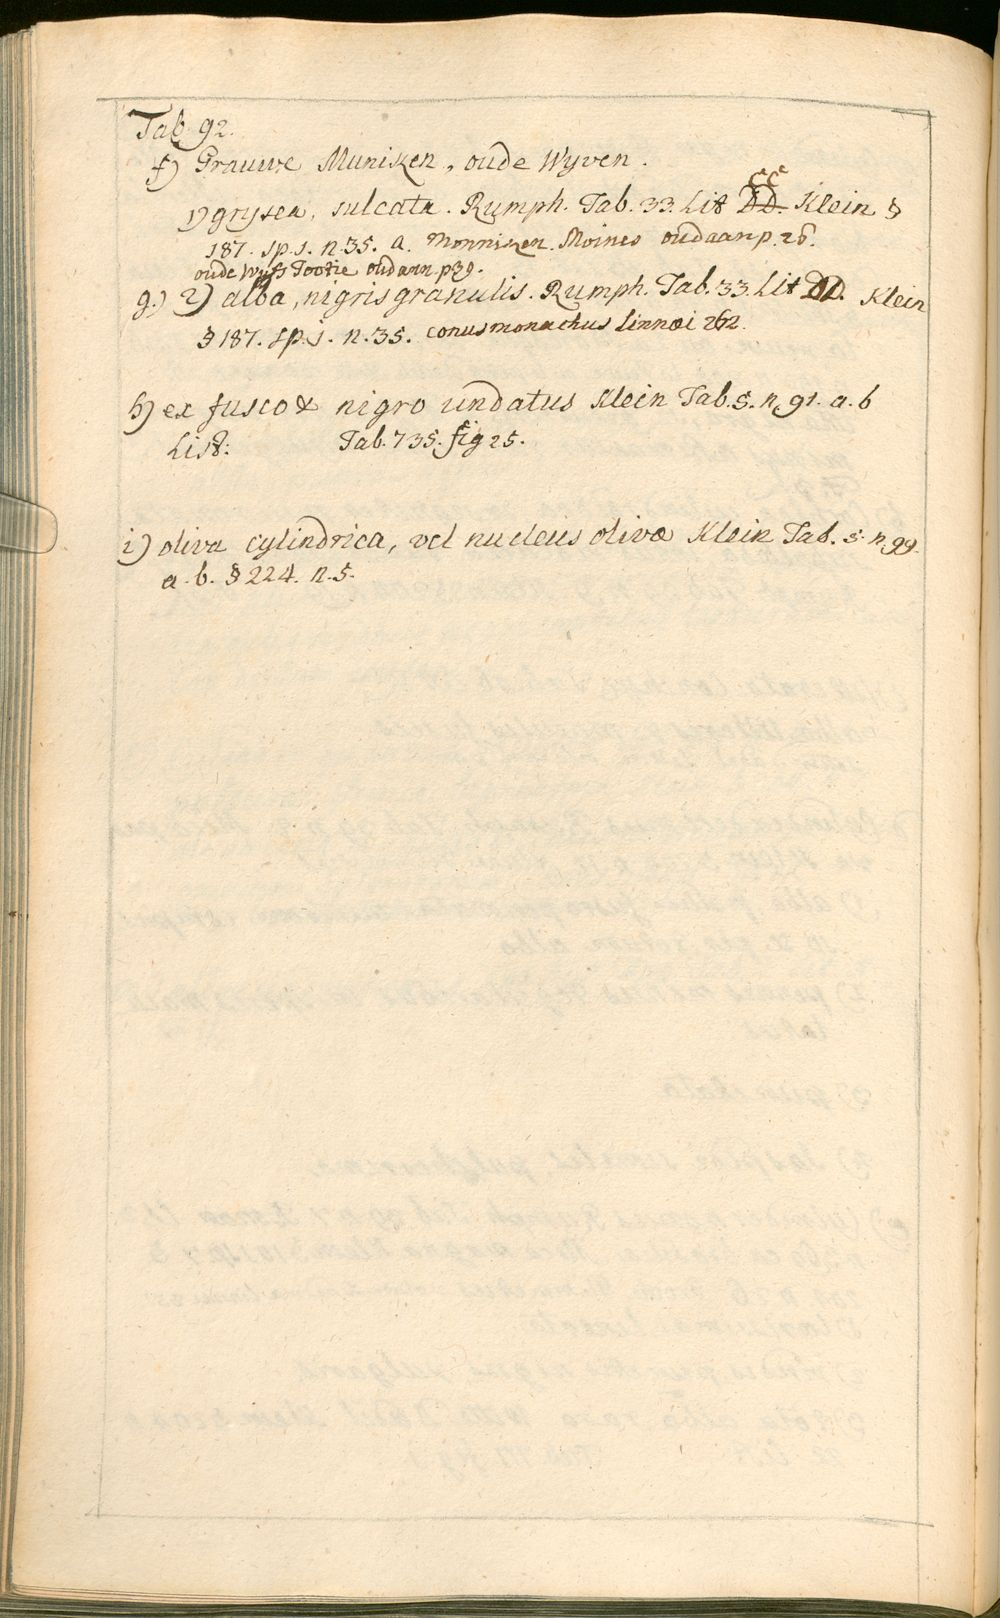 Tab. 92.
f) Grauwe Munisken, oude Wyven.
CC
1) grysea, sulcata. Rumph. Tab. 33. Lit DD. Klein §
187. sp. 1. n. 35. a. Monnisken Moines oudaan p. 26.
oude Wyfs Tootie oudaan p 39.
g.) 2) alba, nigris granulis. Rumph. Tab. 33. Lit DD. Klein
§ 187. sp. j. n. 35. conus monachus Linnæi 262.
h) ex fusco & nigro undatus Klein Tab. 5. n. 91. a. b
List: Tab. 735. fig 25.
i) oliva cylindrica, vel nucleus olivæ Klein Tab. 5. n. 99.
a. b. § 224. n. 5.